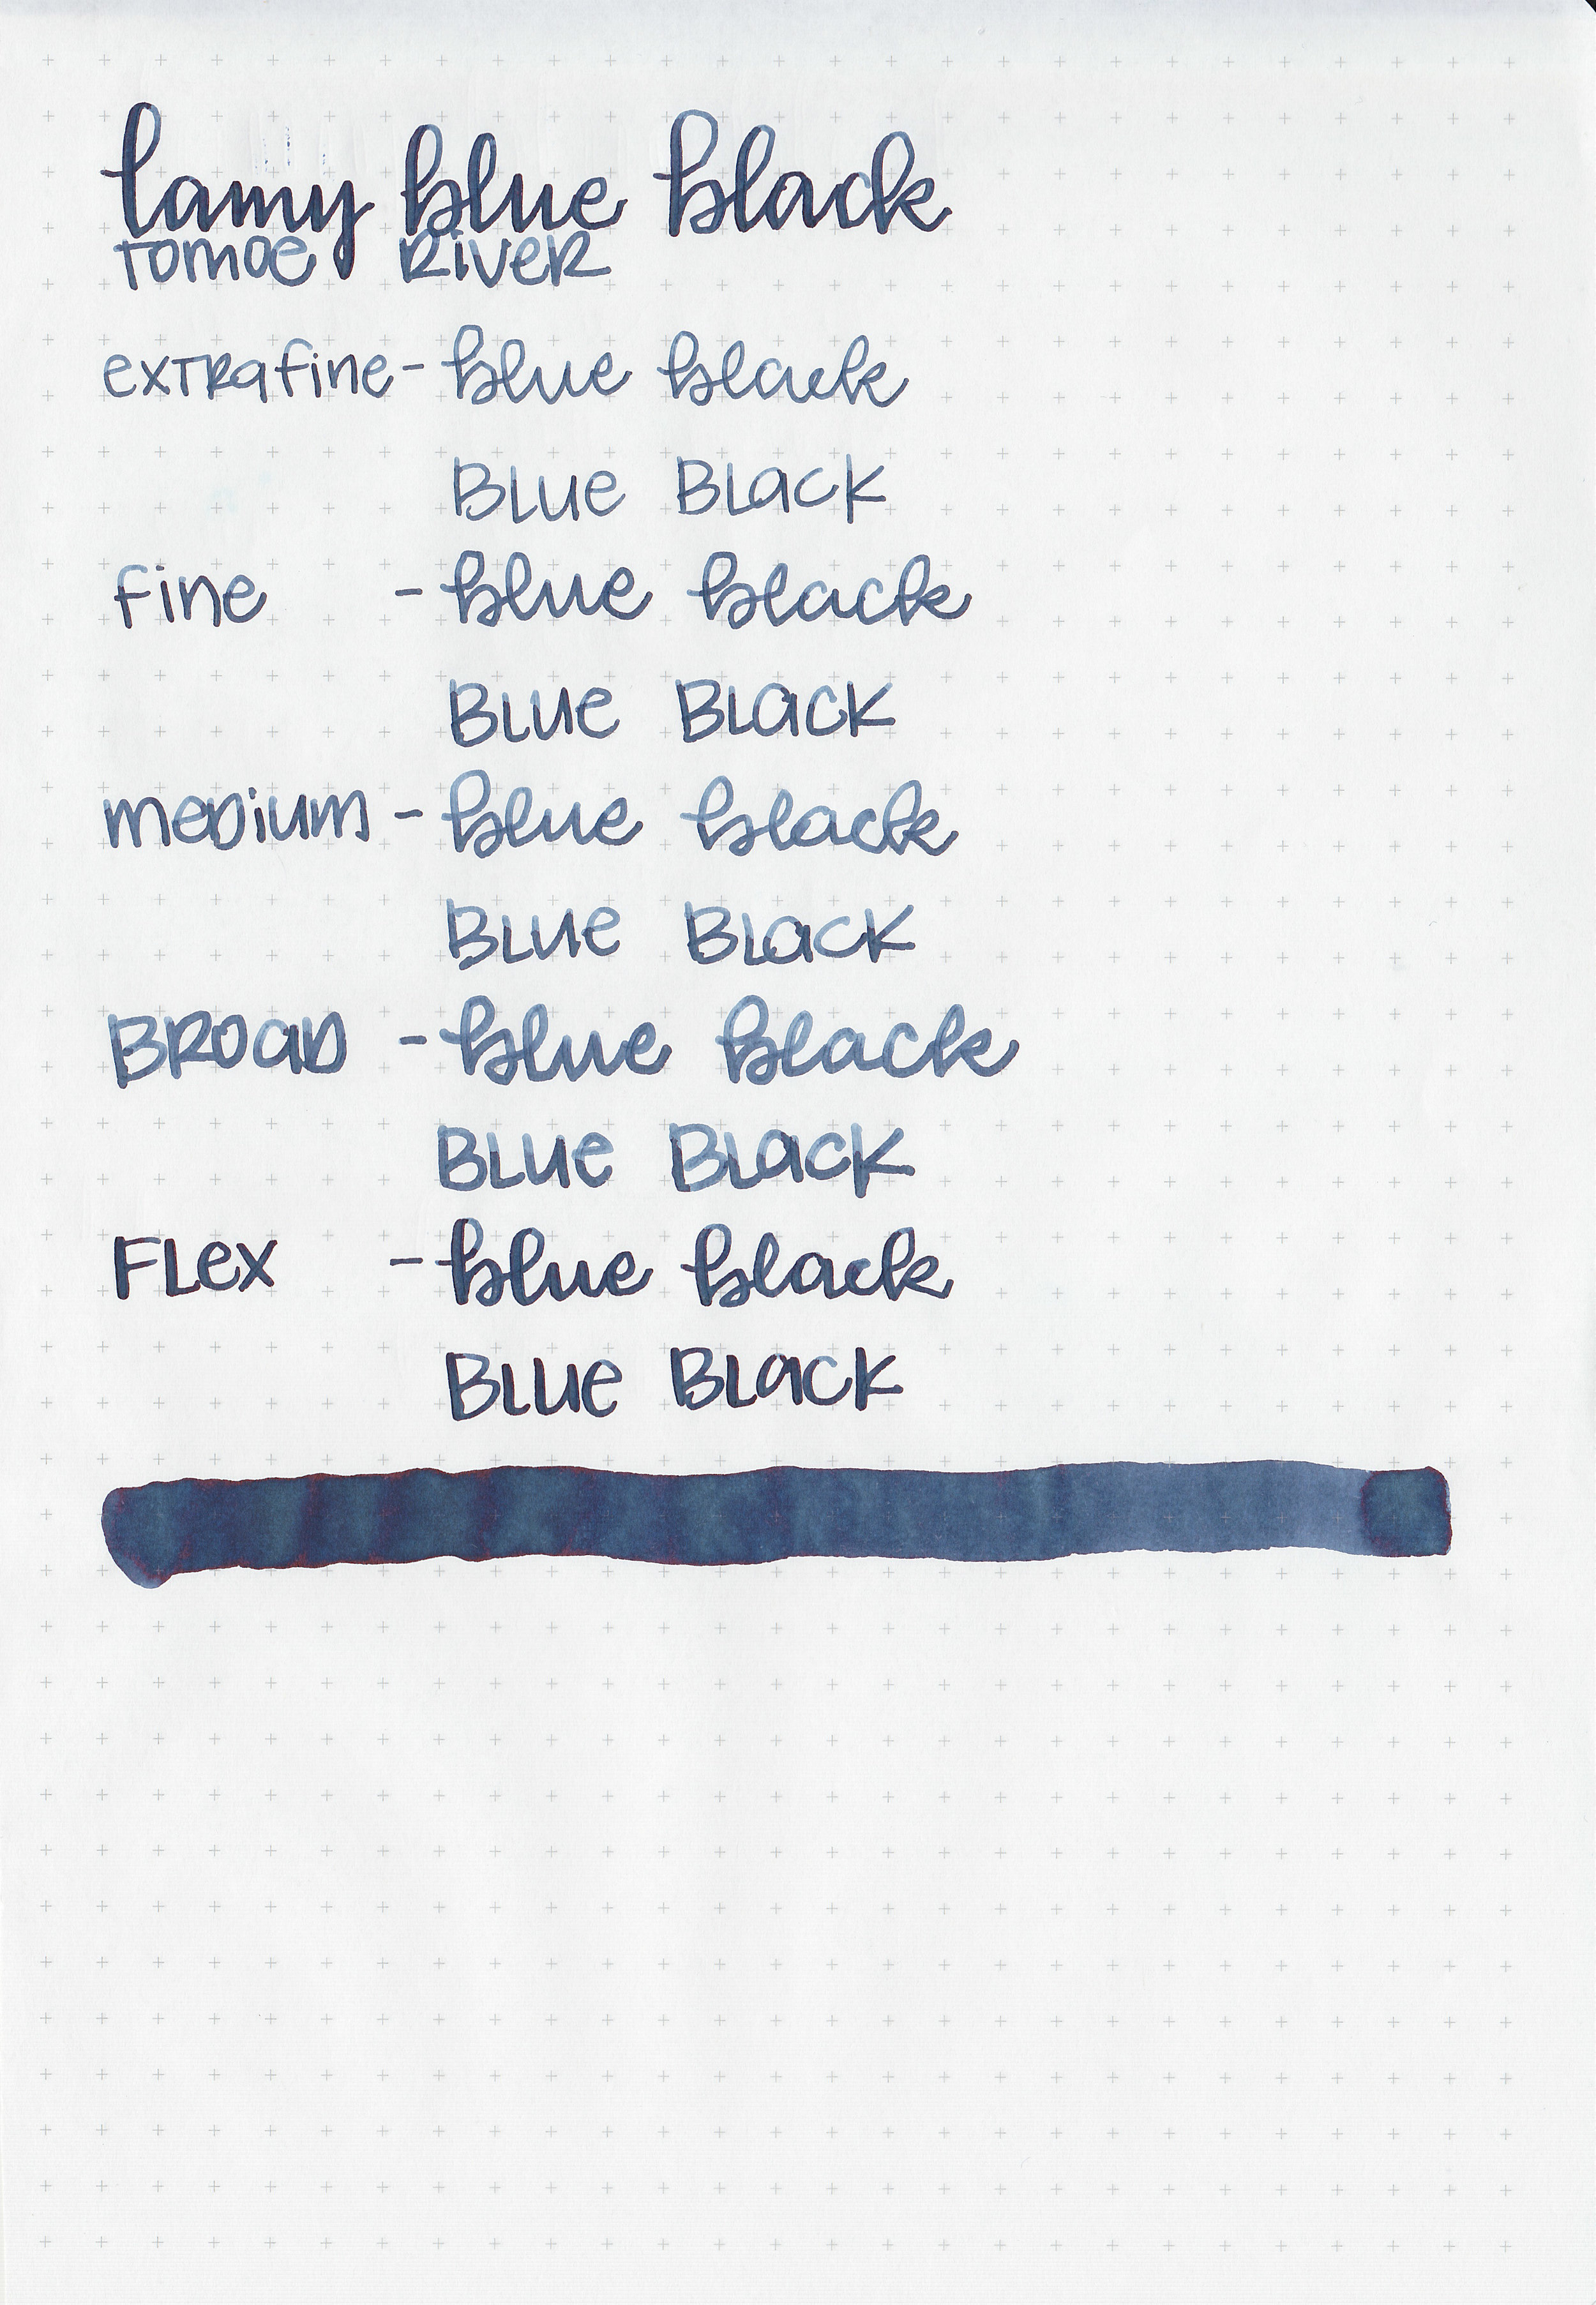 lamy blue black
Tomoe River
extra fine - blue black
Blue Black
fine - blue black
Blue Black
medium - blue black
Blue Black
Broad - blue black
Blue Black
Flex - blue black
Blue Black